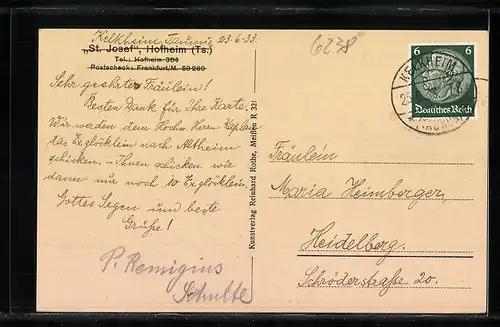 Kelkheim Taunus 23.6.33.
„St. Josef", Hofheim (Ts.)
Tel.: Hofheim 384
Postscheck: Frankfurt/M. 50260
6238
6 6
Deutsches Reich
KELKHEIM
Sehr geehrtes Fräulein!
Besten Dank für Ihre Karte.
Wir werden dem Hochw. Herrn Kaplan
das Exglöcklein nach Altheim
schicken. – Ihnen schicken wir
dann nur noch 10 Exglöcklein.
Gottes Segen und beste
Grüße!
P. Remigius
Schulte
Kunstverlag Reinhard Rothe, Meißen R 321
Fräulein
Maria Heimberger,
Heidelberg.
Schröderstraße 20.